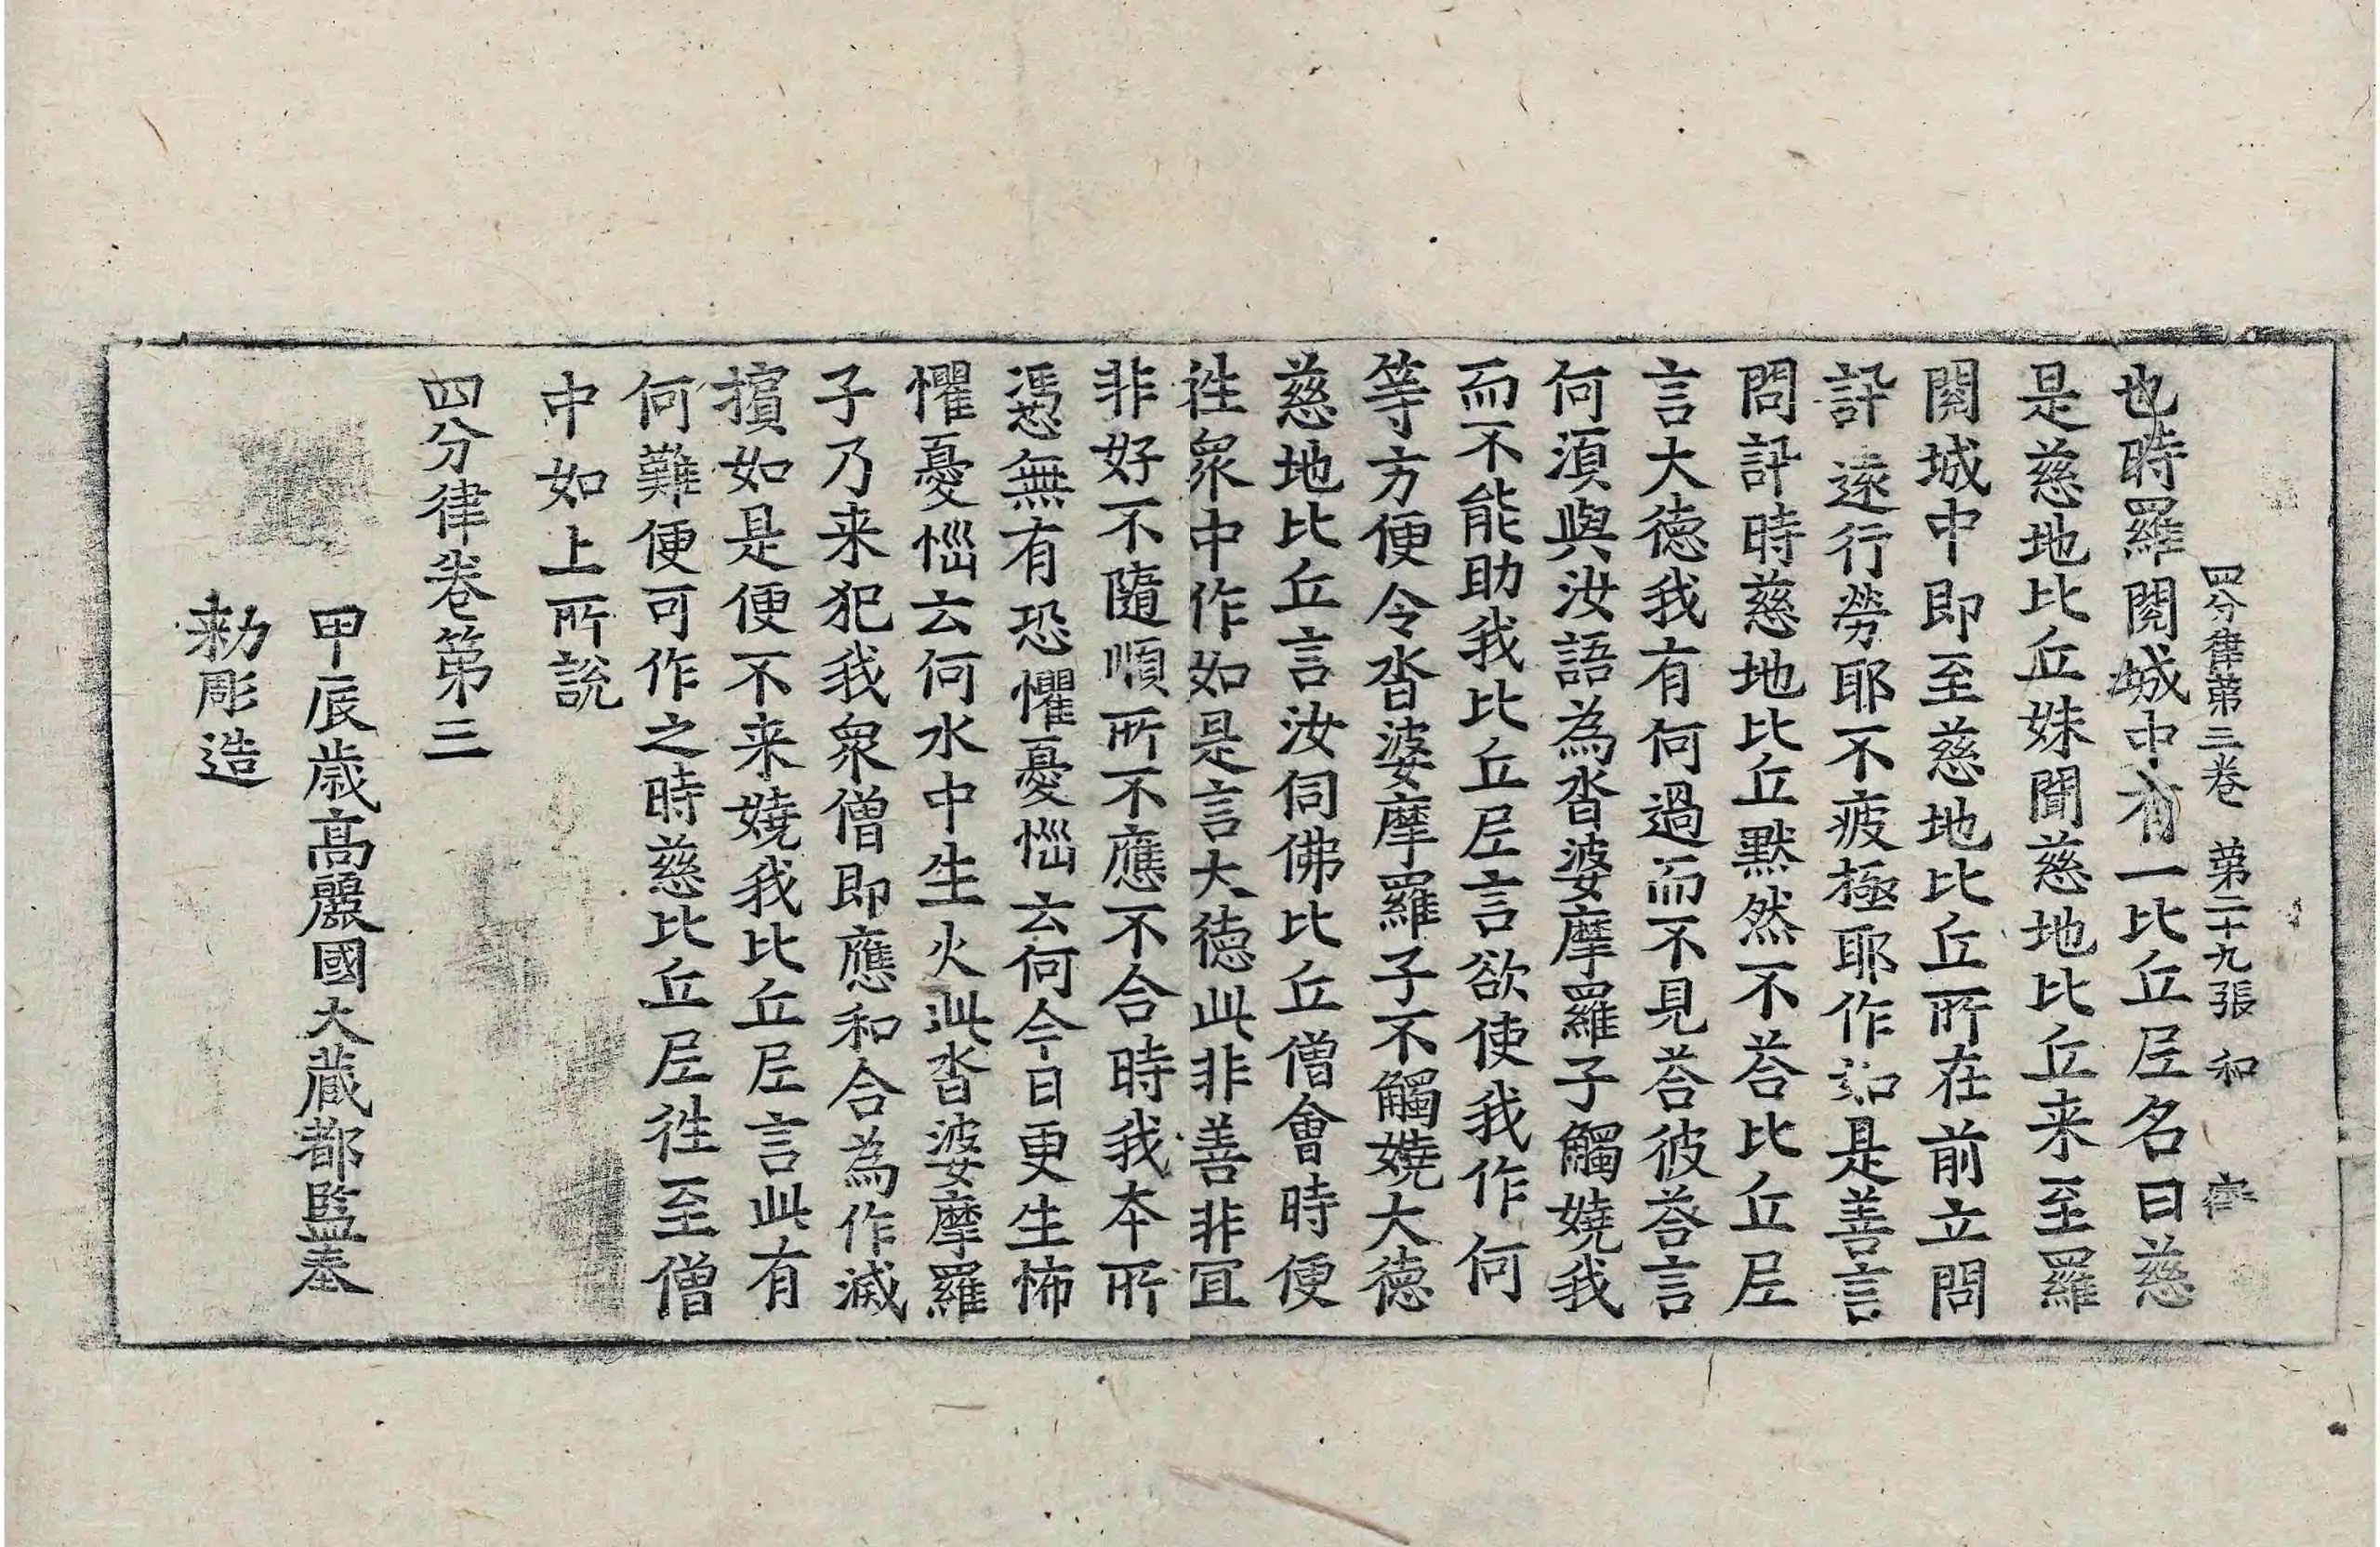 四分律第三卷　第二十九張　和
也時羅閱城中有一比丘尼名曰慈
是慈地比丘妹聞慈地比丘来至羅
閱城中即至慈地比丘所在前立問
訊遠行勞耶不疲極耶作如是善言
問訊時慈地比丘默然不荅比丘尼
言大德我有何過而不見荅彼荅言
何須與汝語為沓婆摩羅子觸嬈我
而不能助我比丘尼言欲使我作何
等方便令沓婆摩羅子不觸嬈大德
慈地比丘言汝伺佛比丘僧會時便
往衆中作如是言大德此非善非冝
非好不隨順所不應不合時我夲所
憑無有恐懼憂惱云何今日更生怖
懼憂惱云何水中生火此沓婆摩羅
子乃来犯我衆僧即應和合為作滅
擯如是便不来嬈我比丘尼言此有
何難便可作之時慈比丘尼往至僧
中如上所說
四分律卷第三
甲辰歲高麗國大藏都監奉
勅彫造